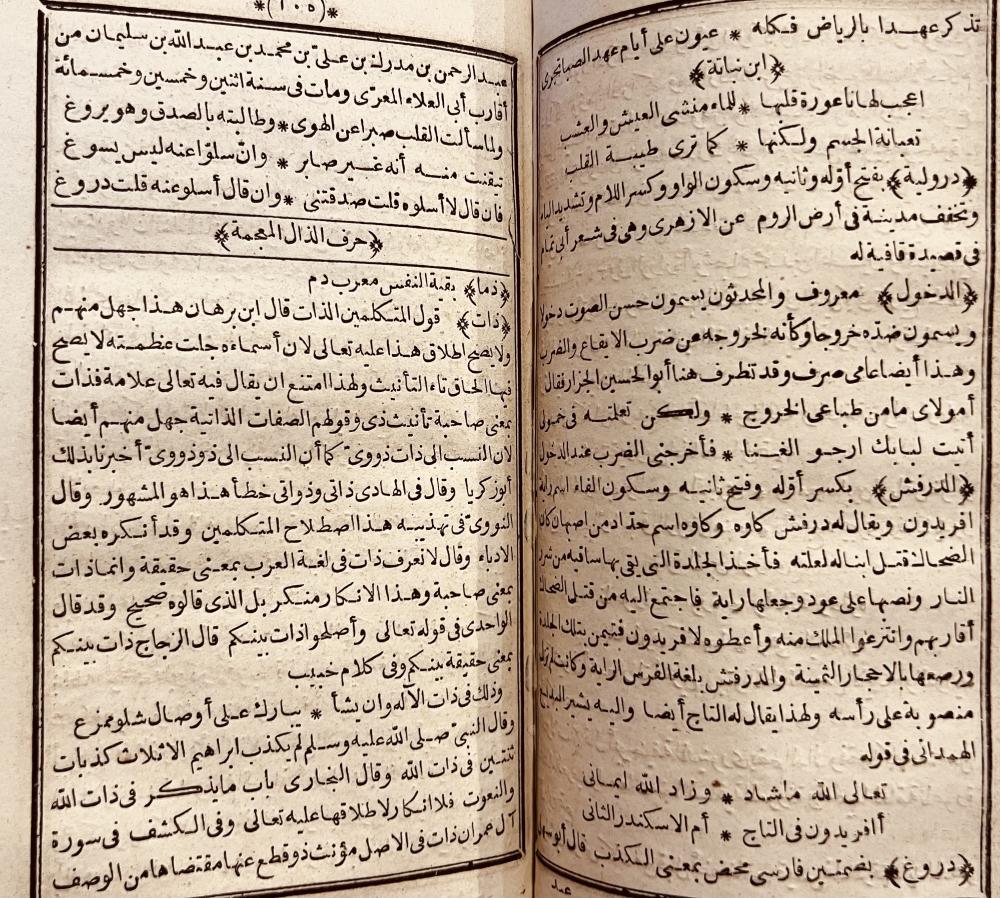 تذكر عهدا بالرياض فكله * عيون على أيام عهد الصبا تجرى
﴿ابن نباتة﴾
اعجب لها ناعورة قلبها * للماء منشى العيش والعشب
تعبانة الجسم ولكنها * كما ترى طيبة القلب
﴿درولية﴾ بفتح أوله وثانيه وسكون الواو وكسر اللام وتشديد الياء
وتخفف مدينة فى أرض الروم عن الازهرى وهى فى شعر أبى تمام
فى قصيدة قافية له
﴿الدخول﴾ معروف والمحدثون يسمون حسن الصوت دخولا
ويسمون ضده خروجا وكأنه لخروجه عن ضرب الايقاع والضرب
وهذا أيضا عامى صرف وقد تظرف هنا أبو الحسين الجزار فقال
أمولاى ما من طباعى الخروج * ولكن تعلمته فى خمولى
أتيت لبابك ارجو الغنا * فأخرجنى الضرب عند الدخول
﴿الدرفش﴾ بكسر أوله وفتح ثانيه وسكون الفاء اسم راية
افريدون ويقال له درفش كاوه وكاوه اسم حداد من اصبهان كان
الضحاك قتل ابنا له لعلته فأخذ الجلدة التى يقى بها ساقيه من شرر
النار ونصبها على عود وجعلها راية فاجتمع اليه من قتل الضحاك
أقاربهم وانتزعوا الملك منه وأعطوه لافريدون فتيمن بتلك الجلدة
ورصعها بالاحجار الثمينة والدرفش بلغة الفرس الراية وكانت لم تزل
منصوبة على رأسه ولهذا يقال له التاج أيضا واليه يشير البديع
الهمدانى فى قوله
تعالى الله ماشاد * وزاد الله ايمانى
أافريدون فى التاج * أم الاسكندر الثانى
﴿دروغ﴾ بضمتين فارسى محض بمعنى الكذب قال أبو سهل
عبد
*(١٠٥)*
عبد الرحمن بن مدرك بن على بن محمد بن عبد الله بن سليمان من
أقارب أبى العلاء المعرى ومات فى سنة اثنين وخمسين وخمسمائة
ولما سألت القلب صبرا عن الهوى * وطالبته بالصدق وهو يروغ
تيقنت منه أنه غير صابر * وان سلوّا عنه ليس يسوغ
فان قال لا أسلوه قلت صدقتنى * وان قال أسلو عنه قلت دروغ
﴿حرف الذال المعجمة﴾
﴿ذما﴾ بقية النفس معرب دم
﴿ذات﴾ قول المتكلمين الذات قال ابن برهان هذا جهل منهم
ولا يصح اطلاق هذا عليه تعالى لان أسماءه جلت عظمته لا يصح
فيها الحاق تاء التأنيث ولهذا امتنع ان يقال فيه تعالى علامة فذات
بمعنى صاحبة تأنيث ذى وقولهم الصفات الذاتية جهل منهم أيضا
لان النسب الى ذات ذووى كما أن النسب الى ذو ذووى أخبرنا بذلك
أبو زكريا وقال فى الهادى ذاتى وذواتى خطأ هذا هو المشهور وقال
النووى فى تهذيبه هذا اصطلاح المتكلمين وقد أنكره بعض
الادباء وقال لا نعرف ذات فى لغة العرب بمعنى حقيقة وانما ذات
بمعنى صاحبة وهذا الانكار منكر بل الذى قالوه صحيح وقد قال
الواحدى فى قوله تعالى وأصلحوا ذات بينكم قال الزجاج ذات بينكم
بمعنى حقيقة بينكم وفى كلام خبيب
وذلك فى ذات الآله وان يشأ * يبارك على أوصال شلو ممزع
وقال النبى صلى الله عليه وسلم لم يكذب ابراهيم الا ثلاث كذبات
ثنتين فى ذات الله وقال البخارى باب ما يذكر فى ذات الله
والنعوت فلا انكار لاطلاقها عليه تعالى وفى الكشف فى سورة
آل عمران ذات فى الاصل مؤنث ذو قطع عنها مقتضاها من الوصف